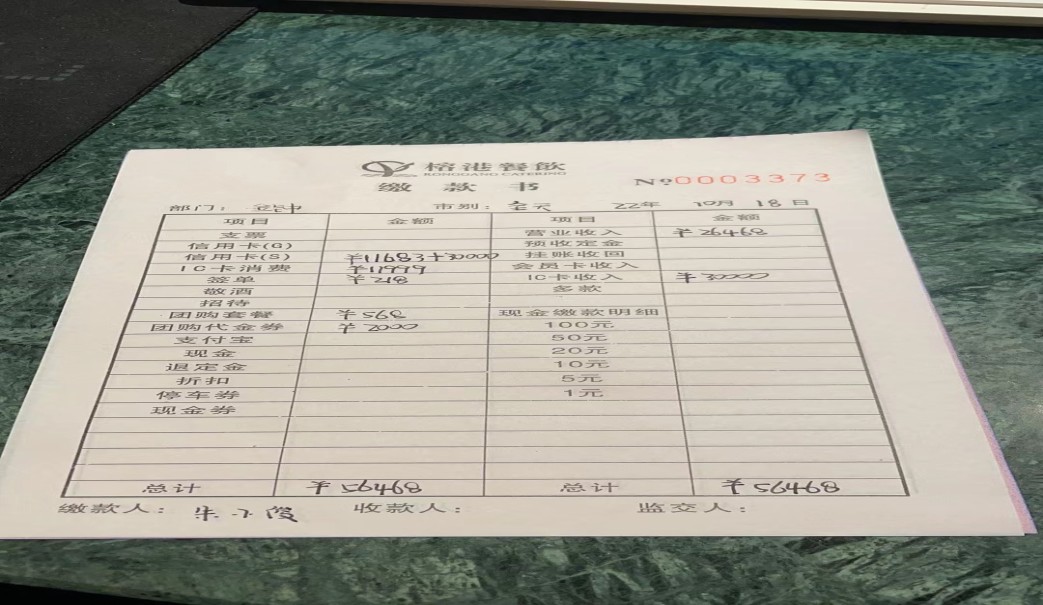 榕港餐飲
RONGGANG CATERING
缴款书 №0003373
部门： 市别：全天 22年 10月 18日
项目 金额 项目 金额
支票 营业收入 ¥26468
信用卡(G) 预收定金
信用卡(S) ¥11683+30000 挂账收回
IC卡消费 ¥11999 会员卡收入
签单 ¥218 IC卡收入 ¥30000
敬酒 多款
招待
团购套餐 ¥568 现金缴款明细
团购代金券 ¥2000 100元
支付宝 50元
现金 20元
退定金 10元
折扣 5元
停车券 1元
现金券
总计 ¥56468 总计 ¥56468
缴款人： 收款人： 监交人：